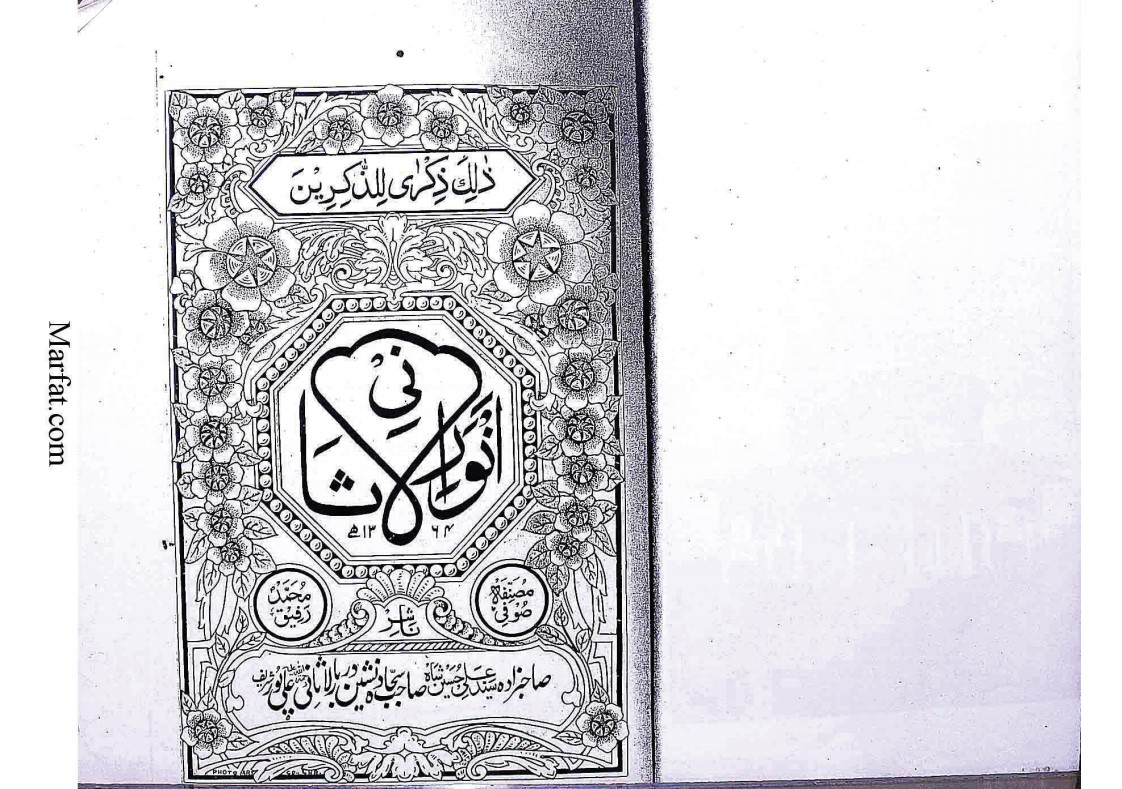 ذٰلِكَ ذِكْرٰى لِلذّٰكِرِيْنَ
انوارِ لاثانی
۱۳۶۴ھ
مصنفہ صوفی
محمد رفیق
ناشر
صاحبزادہ سید علی حسین شاہ صاحب سجادہ نشین دربار لاثانی علی پور شریف
PHOTO ART
Marfat.com